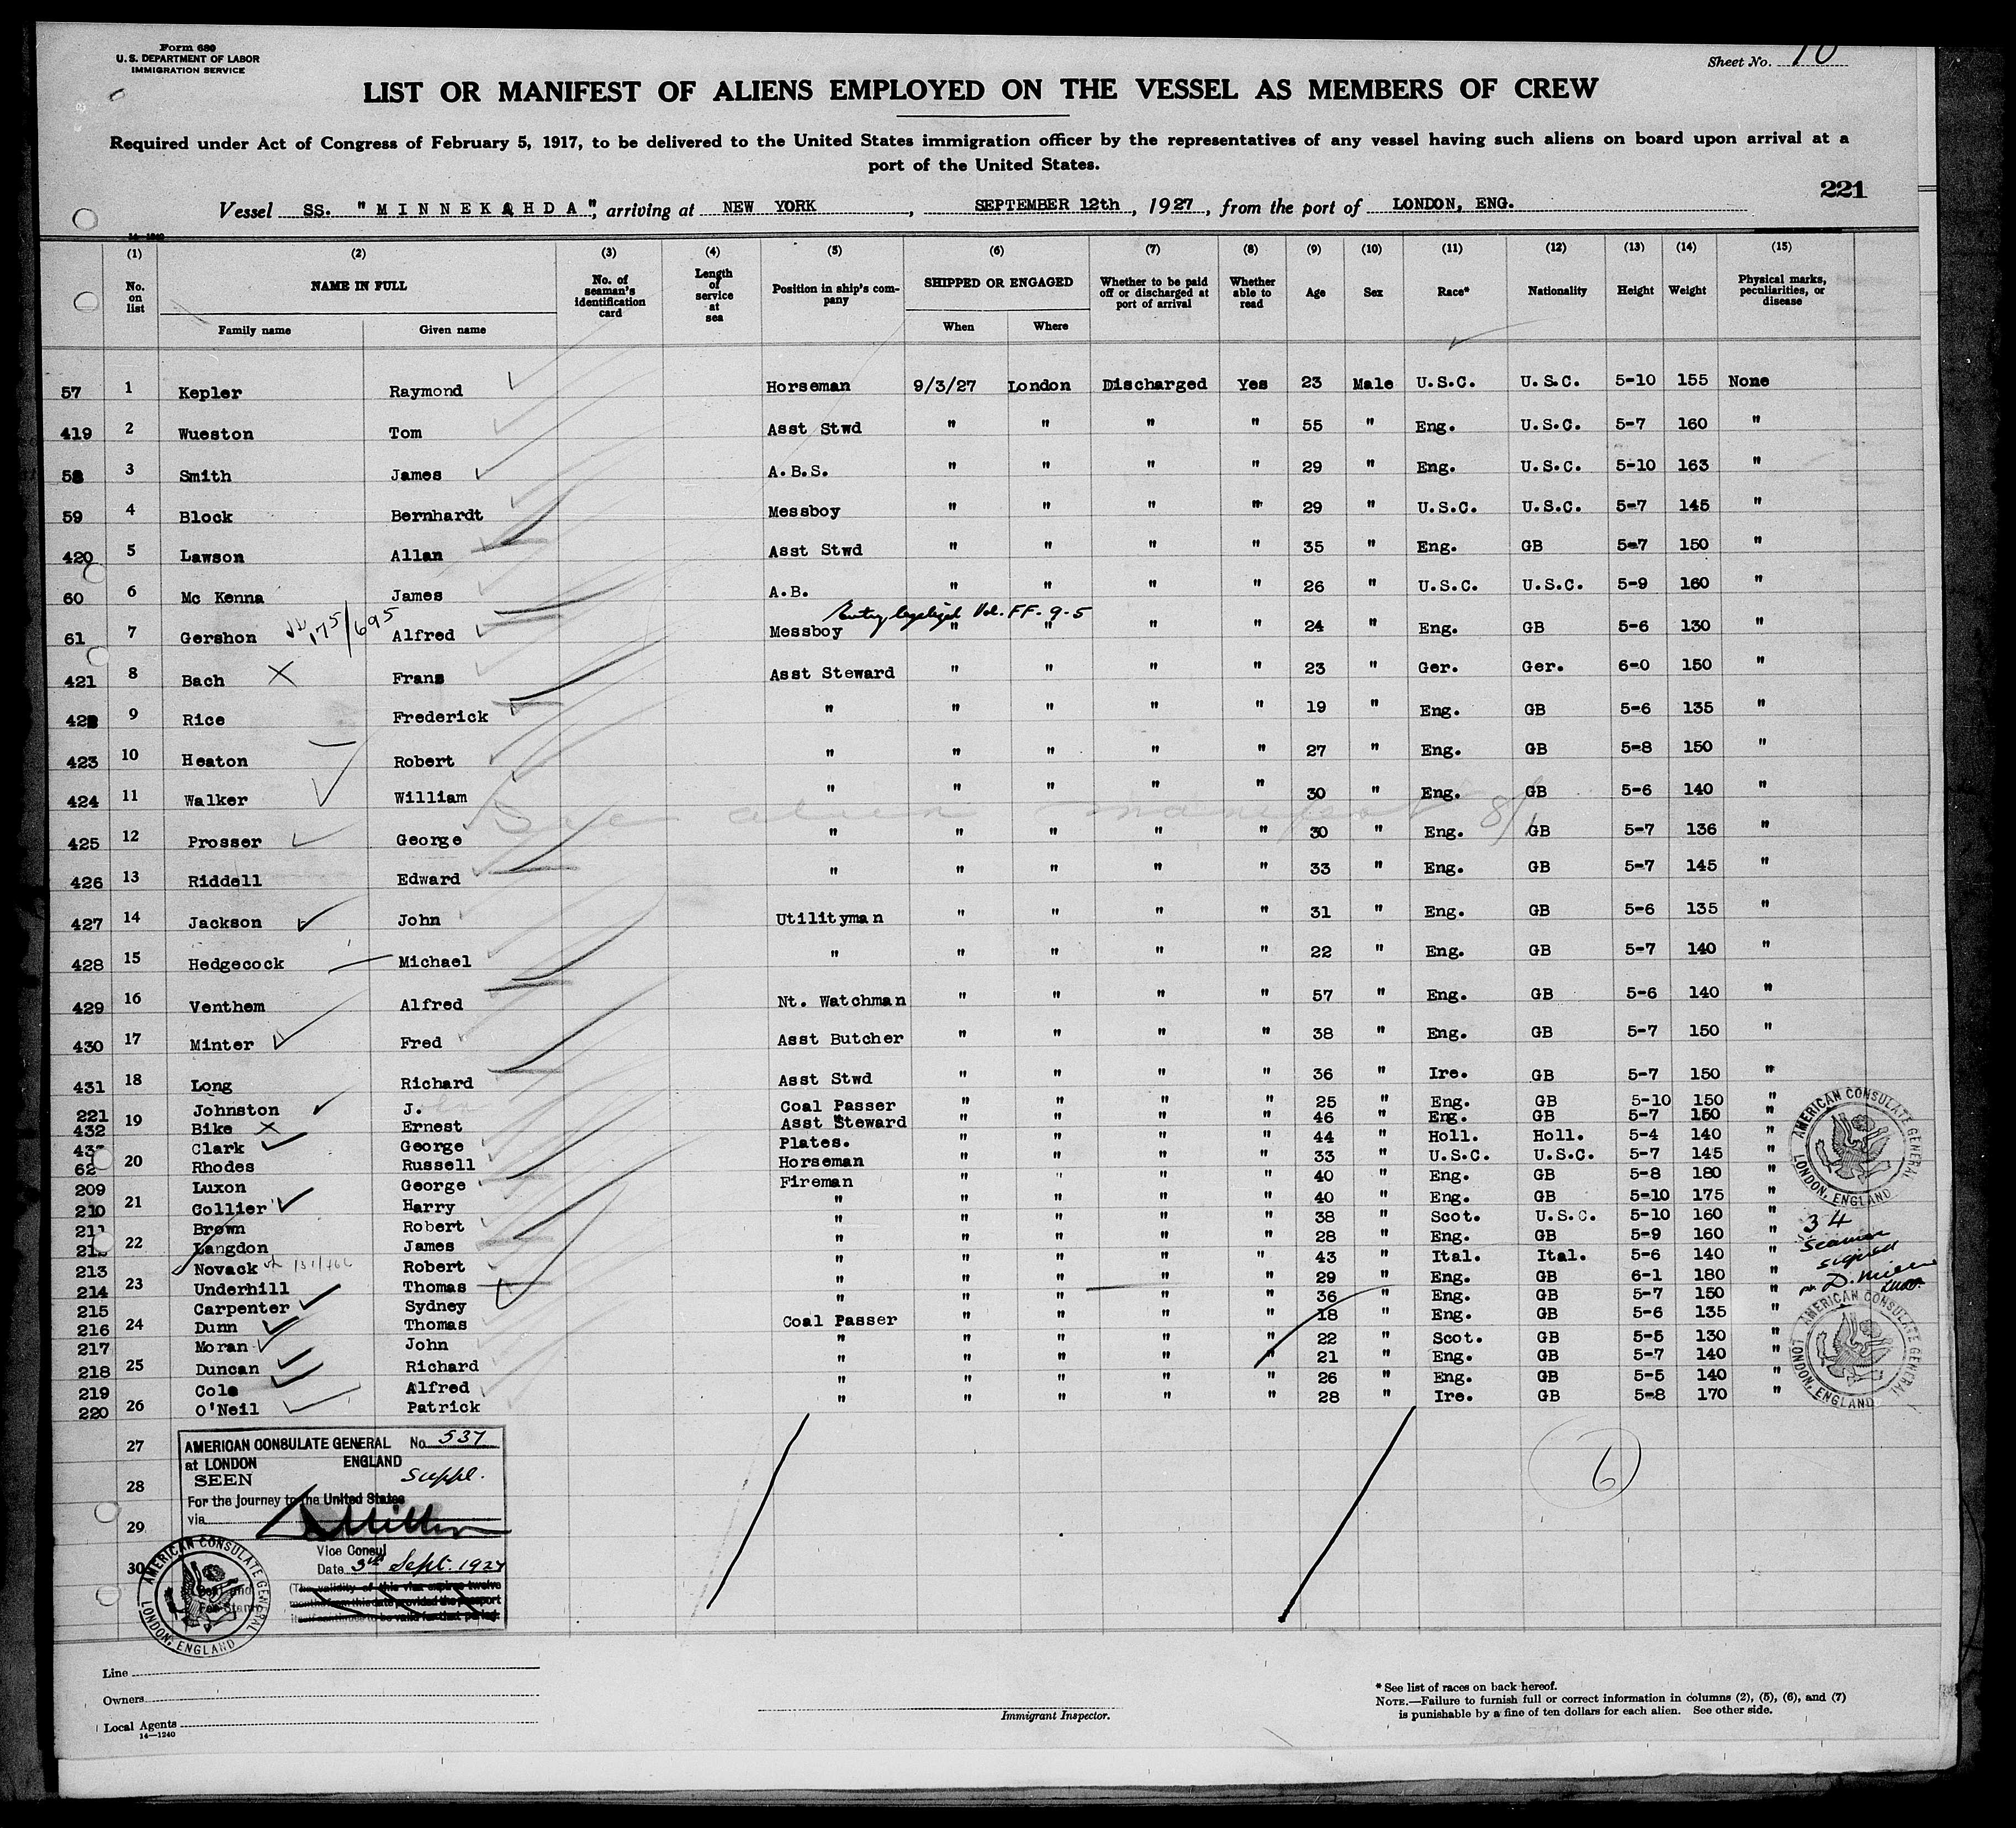 Form 680
U. S. DEPARTMENT OF LABOR
IMMIGRATION SERVICE
Sheet No. 10
LIST OR MANIFEST OF ALIENS EMPLOYED ON THE VESSEL AS MEMBERS OF CREW
Required under Act of Congress of February 5, 1917, to be delivered to the United States immigration officer by the representatives of any vessel having such aliens on board upon arrival at a
port of the United States.
221
Vessel SS. "MINNEKAHDA", arriving at NEW YORK, SEPTEMBER 12th, 1927, from the port of LONDON, ENG.
14—1240
(1) (2) (3) (4) (5) (6) (7) (8) (9) (10) (11) (12) (13) (14) (15)
No. on list NAME IN FULL No. of seaman's identification card Length of service at sea Position in ship's company SHIPPED OR ENGAGED Whether to be paid off or discharged at port of arrival Whether able to read Age Sex Race* Nationality Height Weight Physical marks, peculiarities, or disease
Family name Given name When Where
57 1 Kepler Raymond Horseman 9/3/27 London Discharged Yes 23 Male U.S.C. U.S.C. 5-10 155 None
419 2 Wueston Tom Asst Stwd " " " " 55 " Eng. U.S.C. 5-7 160 "
58 3 Smith James A.B.S. " " " " 29 " Eng. U.S.C. 5-10 163 "
59 4 Block Bernhardt Messboy " " " " 29 " U.S.C. U.S.C. 5-7 145 "
420 5 Lawson Allan Asst Stwd " " " " 35 " Eng. GB 5-7 150 "
60 6 Mc Kenna James A.B. " " " " 26 " U.S.C. U.S.C. 5-9 160 "
Entry legalized Vol. FF-9-5
61 7 Gershon 175/695 Alfred Messboy " " " " 24 " Eng. GB 5-6 130 "
421 8 Bach X Frans Asst Steward " " " " 23 " Ger. Ger. 6-0 150 "
422 9 Rice Frederick " " " " " 19 " Eng. GB 5-6 135 "
423 10 Heaton Robert " " " " " 27 " Eng. GB 5-8 150 "
424 11 Walker William " " " " " 30 " Eng. GB 5-6 140 "
See alien manifest 8/1
425 12 Prosser George " " " " " 30 " Eng. GB 5-7 136 "
426 13 Riddell Edward " " " " " 33 " Eng. GB 5-7 145 "
427 14 Jackson John Utilityman " " " " 31 " Eng. GB 5-6 135 "
428 15 Hedgecock Michael " " " " " 22 " Eng. GB 5-7 140 "
429 16 Venthem Alfred Nt. Watchman " " " " 57 " Eng. GB 5-6 140 "
430 17 Minter Fred Asst Butcher " " " " 38 " Eng. GB 5-7 150 "
431 18 Long Richard Asst Stwd " " " " 36 " Ire. GB 5-7 150 "
221 Johnston J. Coal Passer " " " " 25 " Eng. GB 5-10 150 "
432 19 Bike X Ernest Asst Steward " " " " 46 " Eng. GB 5-7 150 "
43 Clark George Plates. " " " " 44 " Holl. Holl. 5-4 140 "
62 20 Rhodes Russell Horseman " " " " 33 " U.S.C. U.S.C. 5-7 145 "
209 Luxon George Fireman " " " " 40 " Eng. GB 5-8 180 "
210 21 Collier Harry " " " " " 40 " Eng. GB 5-10 175 "
211 Brown Robert " " " " " 38 " Scot. U.S.C. 5-10 160 "
21 22 Langdon James " " " " " 28 " Eng. GB 5-9 160 "
213 Novack Robert " " " " " 43 " Ital. Ital. 5-6 140 "
214 23 Underhill Thomas " " " " " 29 " Eng. GB 6-1 180 "
215 Carpenter Sydney " " " " " 36 " Eng. GB 5-7 150 "
216 24 Dunn Thomas Coal Passer " " " " 18 " Eng. GB 5-6 135 "
217 Moran John " " " " " 22 " Scot. GB 5-5 130 "
218 25 Duncan Richard " " " " " 21 " Eng. GB 5-7 140 "
219 Cole Alfred " " " " " 26 " Eng. GB 5-5 140 "
220 26 O'Neil Patrick " " " " " 28 " Ire. GB 5-8 170 "
AMERICAN CONSULATE GENERAL
LONDON, ENGLAND
34
Seamen
signed
AMERICAN CONSULATE GENERAL
LONDON, ENGLAND
27
28
29
30
6
AMERICAN CONSULATE GENERAL No. 537
at LONDON ENGLAND
SEEN Suppl.
For the journey to the United States
via
Vice Consul
Date 3rd Sept. 1927
(The validity of this visa expires twelve
months from this date provided the passport
itself continues to be valid for that period.
AMERICAN CONSULATE GENERAL
LONDON, ENGLAND
Line
Owners
Local Agents
14—1240
Immigrant Inspector.
* See list of races on back hereof.
NOTE.—Failure to furnish full or correct information in columns (2), (5), (6), and (7)
is punishable by a fine of ten dollars for each alien. See other side.